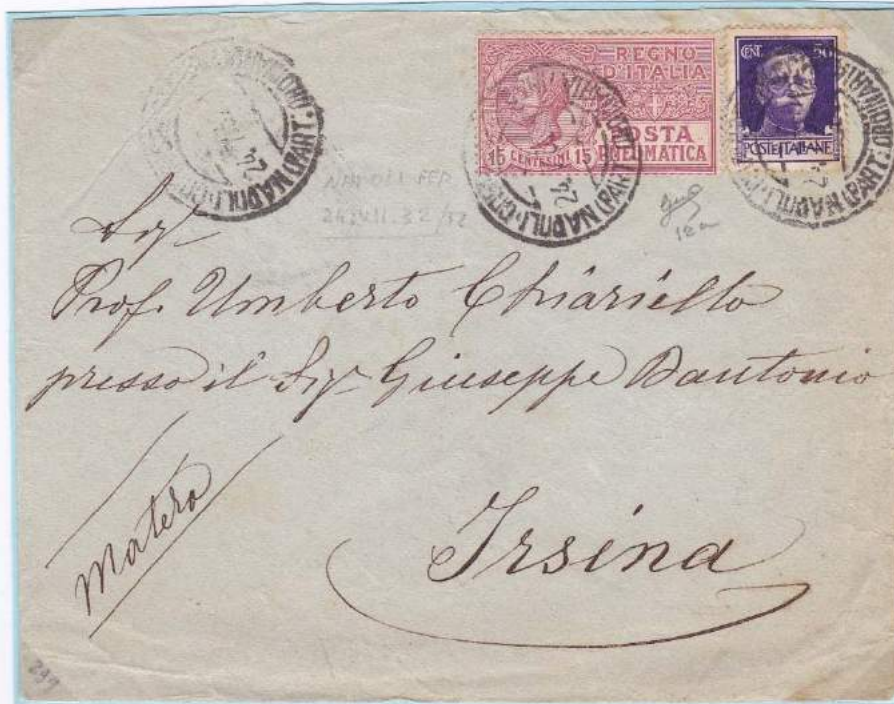 REGNO
D'ITALIA
POSTA
PNEUMATICA
15 CENTESIMI 15
CENT. 50
POSTE ITALIANE
24
NAPOLI
(PART.)
NAPOLI FER
Sigr
Prof. Umberto Chiariello
presso il Sigr Giuseppe Dantonio
Matera
Irsina
299